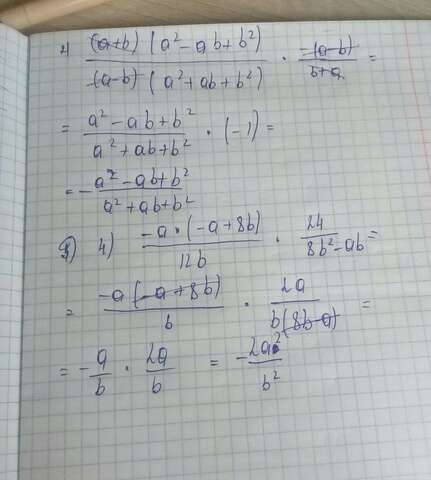 4 (a+b) (a² - ab + b²) / (a-b) (a² + ab + b²) · -(a-b) / b+a =
= a² - ab + b² / a² + ab + b² · (-1) =
= - a² - ab + b² / a² + ab + b²
4) -a · (-a + 8b) / 12b · 24 / 8b² - ab =
= -a (-a + 8b) / b · 2a / b (8b - a) =
= - a / b · 2a / b = -2a² / b²